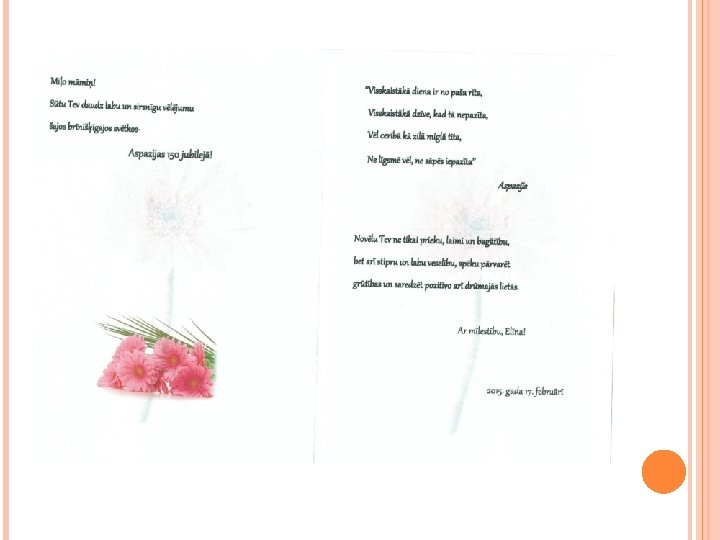 Mīļo māmiņ!
Sūtu Tev daudz labu un sirsnīgu vēlējumu
šajos brīnišķīgajos svētkos-
Aspazijas 150 jubilejā!
"Visskaistākā diena ir no paša rīta,
Visskaistākā dzīve, kad tā nepazīta,
Vēl cerībā kā zilā miglā tīta,
Ne līgsmē vēl, ne sāpēs iepazīta"
Aspazija
Novēlu Tev ne tikai prieku, laimi un bagātību,
bet arī stipru un labu veselību, spēku pārvarēt
grūtības un saredzēt pozitīvo arī drūmajās lietās.
Ar mīlestību, Elīna!
2015. gada 17. februārī